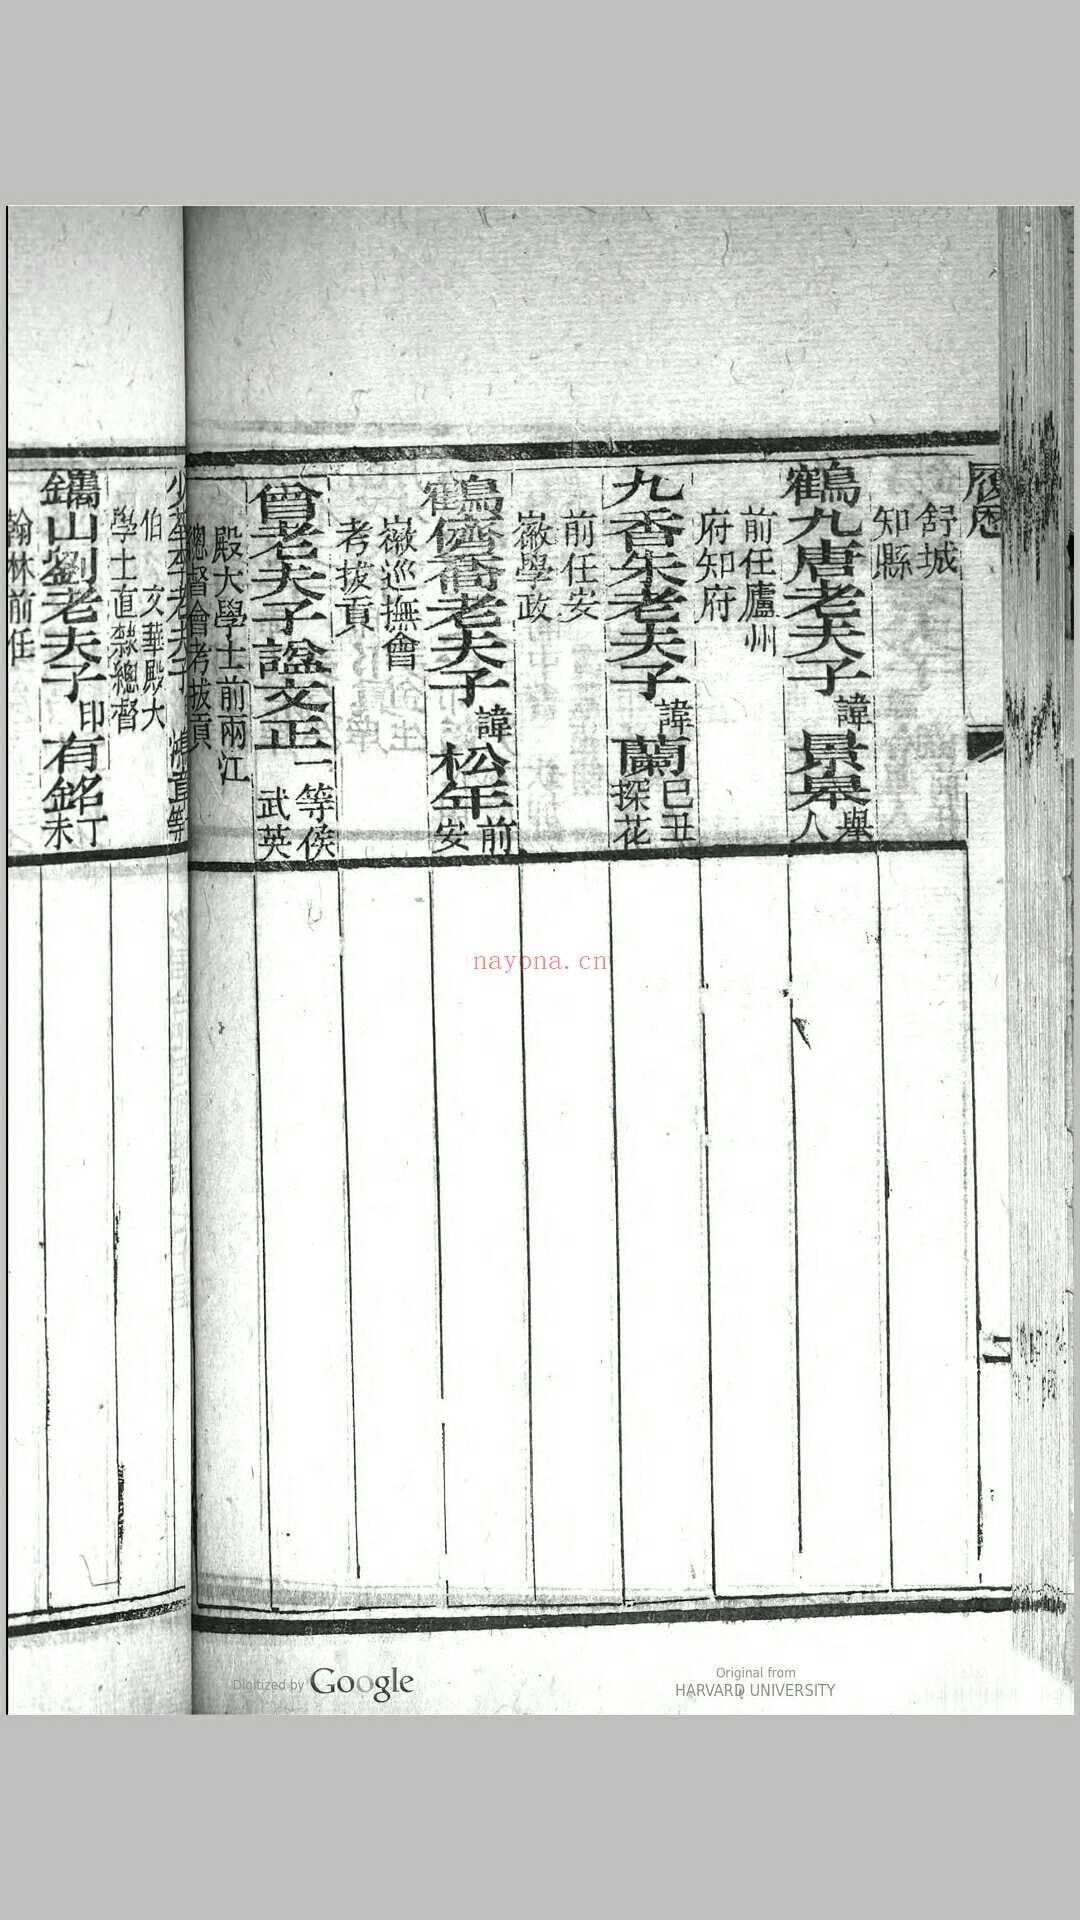 履歷
舒城
知縣
鶴九唐老夫子 諱景皋 舉人
前任廬州
府知府
九香朱老夫子 諱蘭 己丑探花
前任安
徽學政
鶴儕喬老夫子 諱松年 前安
徽巡撫會
考拔貢
曾老夫子諡文正 一等侯武英
殿大學士前兩江
總督會考拔貢
少荃李老夫子 鴻章 等
伯 文華殿大
學士直隸總督
鑴山劉老夫子 印有銘 丁未
翰林前任
nayona.cn
Digitized by Google
Original from
HARVARD UNIVERSITY